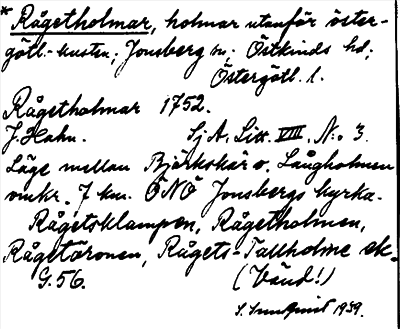 * Rågetholmar, holmar utanför öster-
götl.-kusten; Jonsberg sn; Östkinds hd;
Östergötl. l.
Rågetholmar 1752.
J. Hahn. SjA. Litt. VIII. N:o 3.
Läge mellan Bjärkskär o. Långholmen
omkr. 7 km. ÖNÖ Jonsbergs kyrka.
Rågetsklampen, Rågetholmen,
Rågetöronen, Rågets-Tallholme ek.
G. 56. (Vänd!)
S. Sundqvist 1939.